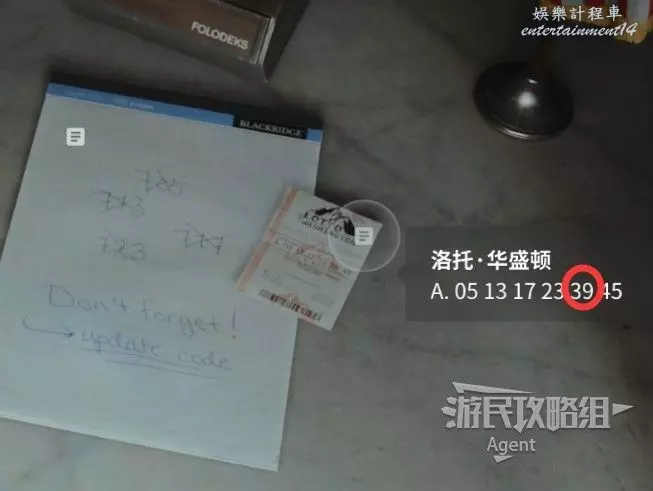 娛樂計程車
entertainment14
FOLODEKS
BLACKRIDGE
785
713
723
717
LOTTO
WASHINGTON
Don't forget!
update code
洛托·华盛顿
A. 05 13 17 23 39 45
游民攻略组
Agent